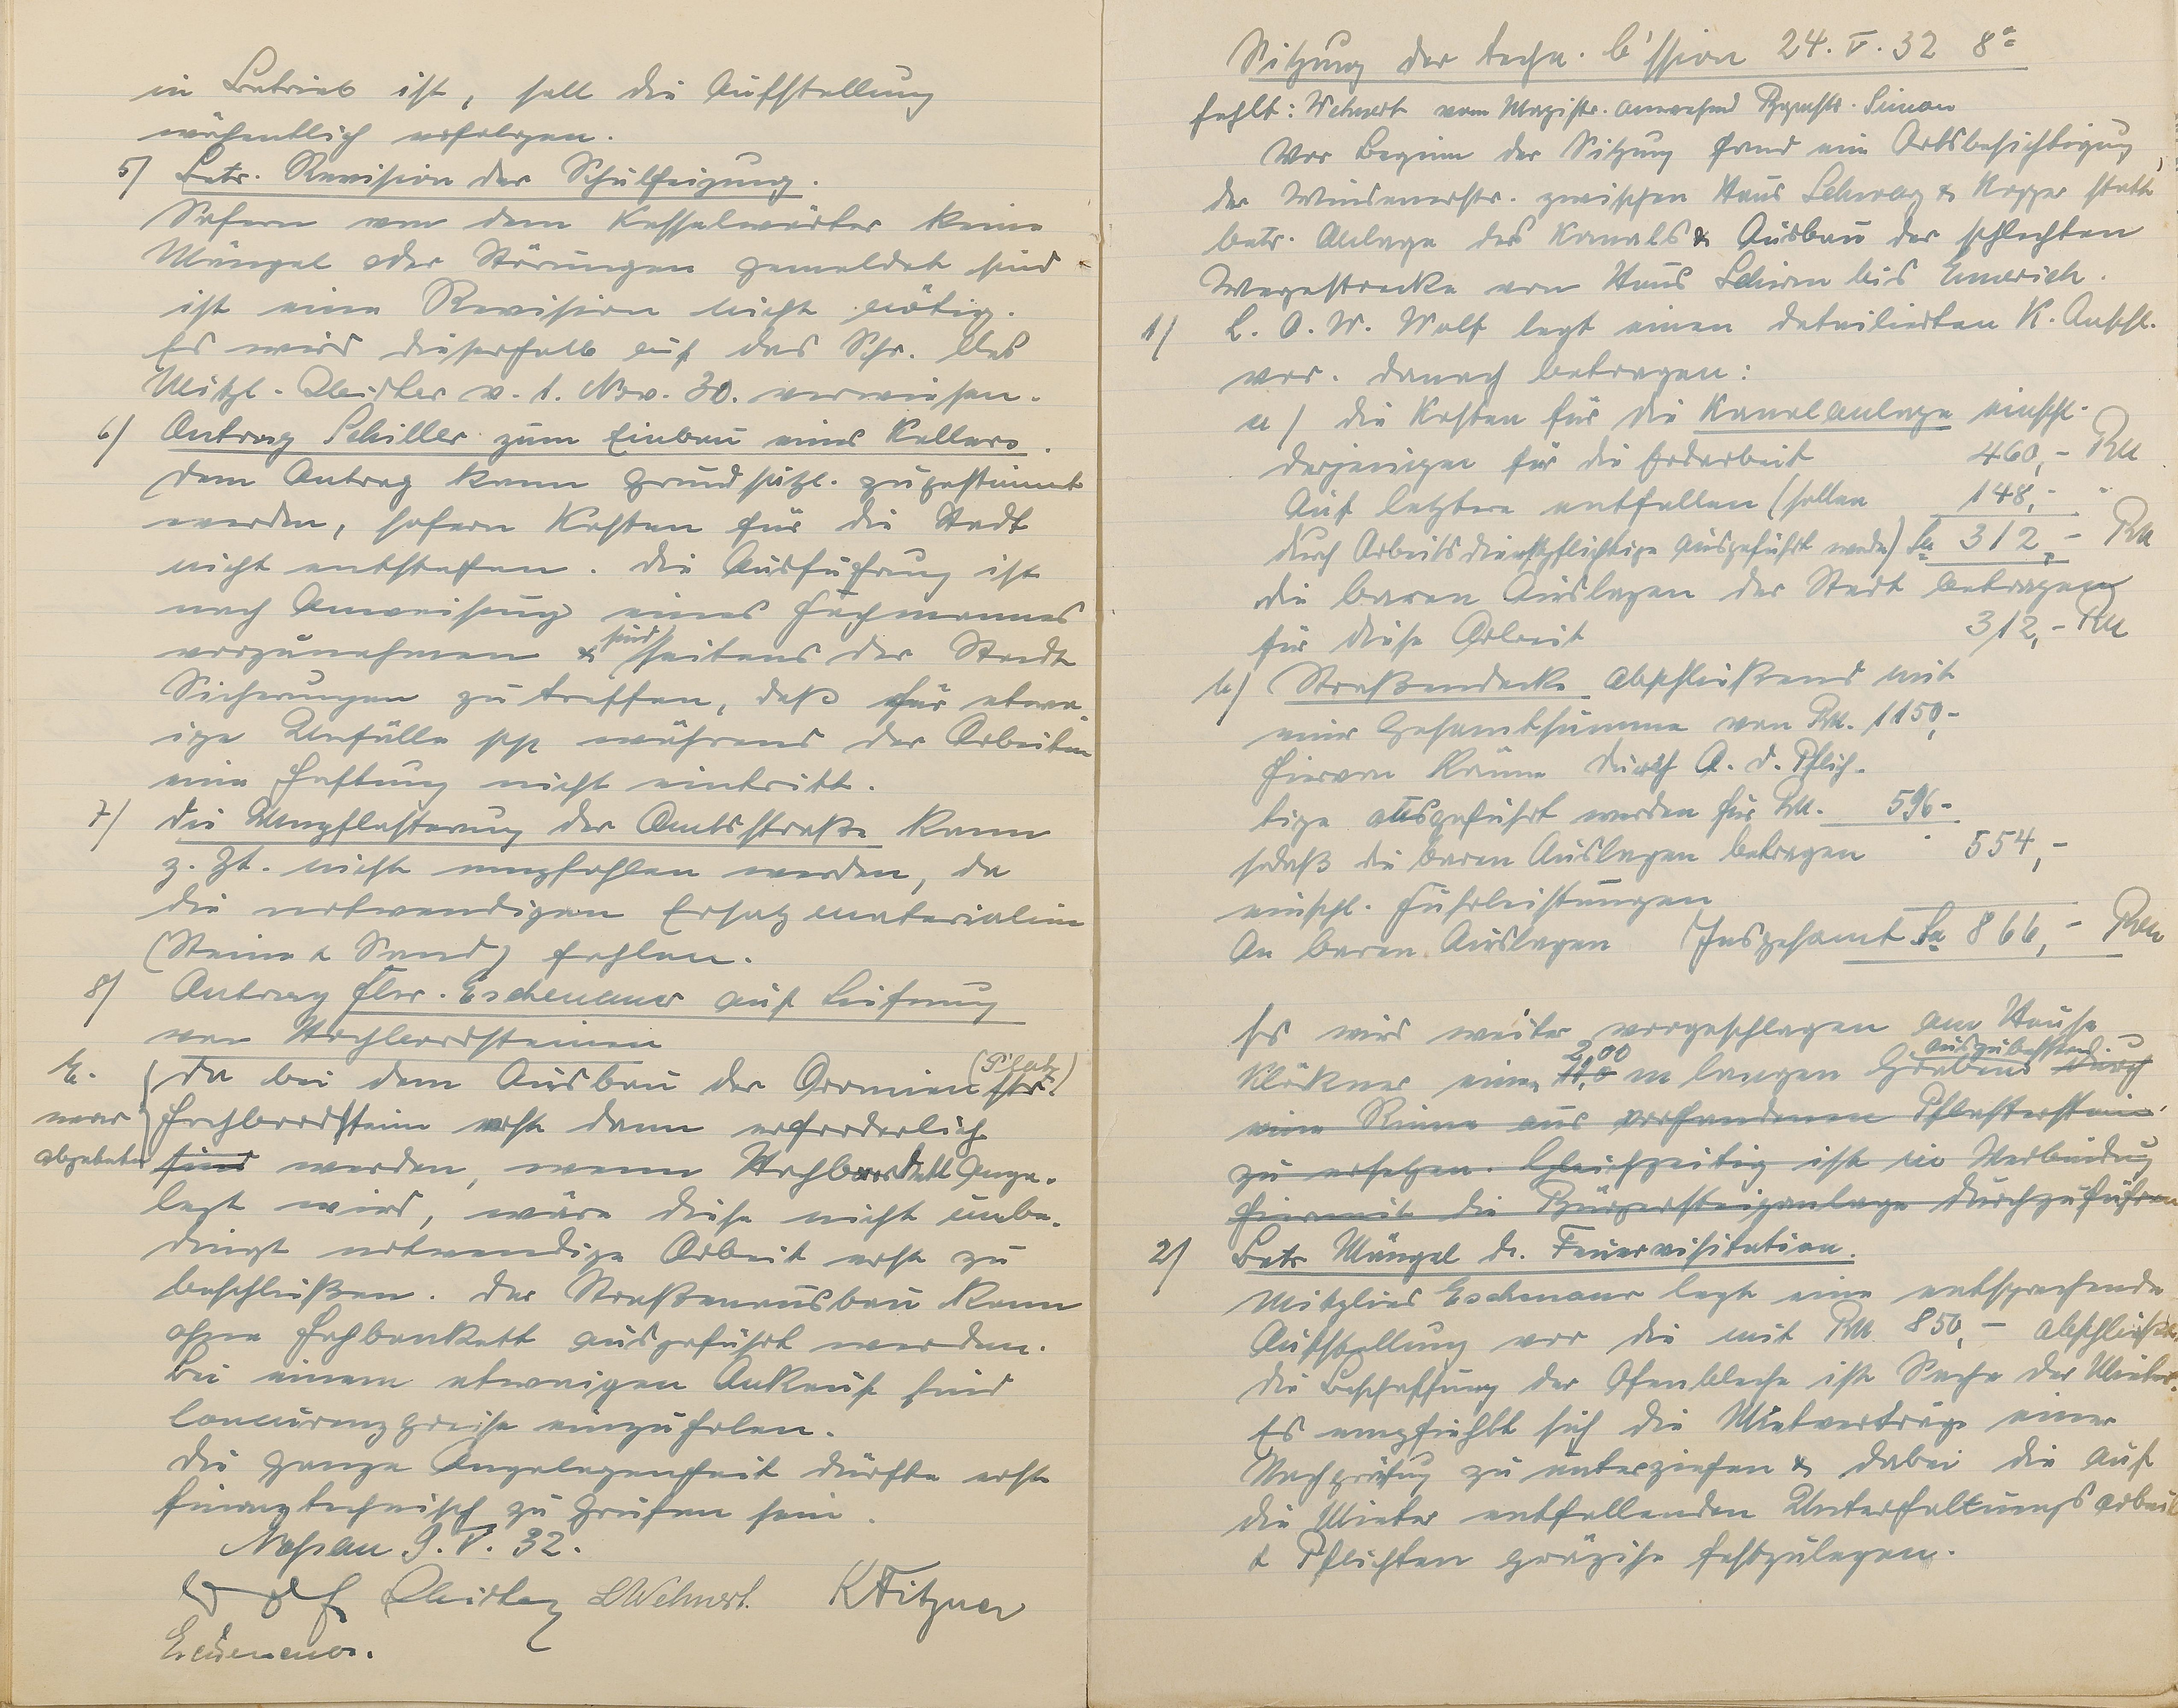 in Betrieb ist, soll die Aufstellung
wöchentlich erfolgen.
5) Betr. Revision der Schulheizung.
Sofern von dem Kesselwärter keine
Mängel oder Störungen gemeldet sind
ist eine Revision nicht nötig.
Es wird dieserhalb auf das Schr. des
Mitgl. v. 1. Nov. 30. verwiesen.
6) Antrag Schiller zum Einbau eines Kellers.
Dem Antrag kann grundsätzl. zugestimmt
werden, sofern Kosten für die Stadt
nicht entstehen. Die Ausführung ist
nach Anweisung eines Fachmannes
vorzunehmen & sind seitens der Stadt
Sicherungen zu treffen, daß für etwa-
ige Unfälle pp während der Arbeiten
eine Haftung nicht eintritt.
7) Die Umpflasterung der Amtsstraße kann
z. Zt. nicht empfohlen werden, da
die notwendigen Ersatzmaterialien
(Steine & Sand) fehlen.
8) Antrag Eschenauer auf Lieferung
von Hochbordsteinen
E.
war
abgetreten
Da bei dem Ausbau der Oranien (Platz) str.
Hochbordsteine erst dann erforderlich
sind werden, wenn Hochbordstett ange-
legt wird, wäre diese nicht unbe-
dingt notwendige Arbeit erst zu
beschließen. Der Straßenausbau kann
ohne Hochbankett ausgeführt werden.
Bei einem etwaigen Ankauf sind
Concurenzpreise einzuholen.
Die ganze Angelegenheit dürfte erst
finanztechnisch zu prüfen sein.
Nassau 9. V. 32.
LWehnert. KFitzner
Eschenauer.
Sitzung der techn. C'ssion 24. V. 32 8°°
fehlt: Wehnert vom Magistr. anwesend Bgmstr. Simon
Vor Beginn der Sitzung fand eine Ortsbesichtigung
der Windenerstr. zwischen Haus Schwarz & statt,
betr. Anlage des Kanals & Ausbau der schlechten
Wegestrecke von Haus Schirm bis Emmerich.
1) L. O. W. Wolf legt einen detailierten K. Anschl.
vor. Danach betragen:
a) die Kosten für die Kanalanlage einschl.
derjenigen für die Erdarbeit 460,- RM
Auf letztere entfallen (sollen 148,- "
durch Arbeitsdienstpflichtige ausgeführt werden) Sa 312,- RM
die baren Auslagen der Stadt betragen
für diese Arbeit 312,- RM
b) Straßendecke abschließend mit
einer Gesamtsumme von RM. 1150,-
hiervon könne durch A. d. Pflich-
tige ausgeführt werden für RM. 596-
sodaß die baren Auslagen betragen " 554,-
einschl. Fuhrleistungen
An baren Auslagen Insgesamt Sa 866,- RM
Es wird weiter vorgeschlagen am Hause
Klöckner einen 11,0 2,00 m langen Graben auszubessern. durch
eine Rinne aus vorhandenen Pflastersteine
zu ersetzen. Gleichzeitig ist in Verbindung
hiermit die Bürgersteiganlage durchzuführen
2) Betr. Mängel d. Feuervisitation.
Mitglied Eschenauer legt eine entsprechende
Aufstellung vor die mit RM 850,- abschließt.
Die Beschaffung der Ofenbleche ist Sache der Mieter.
Es empfiehlt sich die Mietverträge einer
Nachprüfung zu unterziehen & dabei die auf
die Mieter entfallenden Unterhaltungsarbeit
& Pflichten präzise festzulegen.